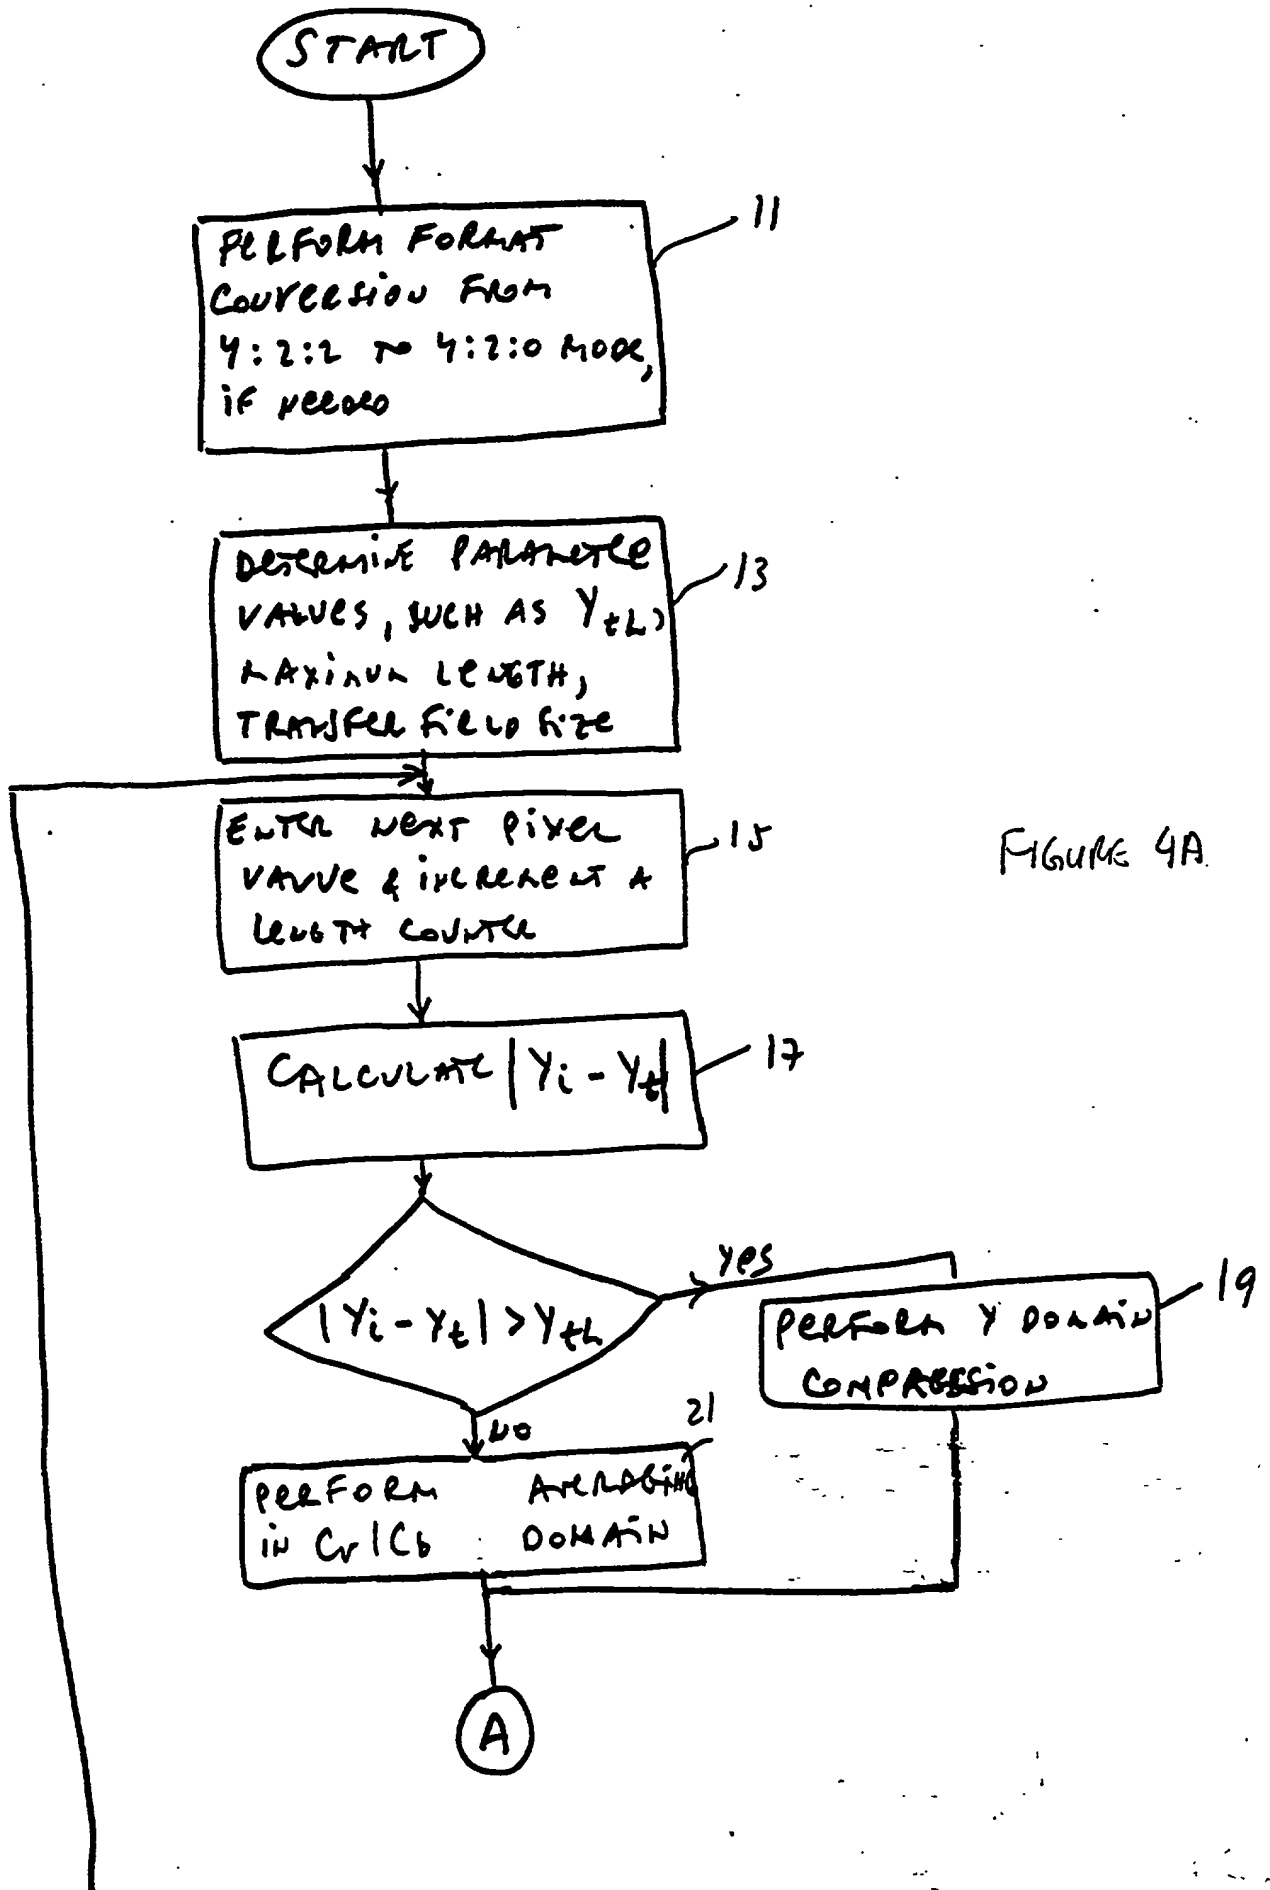 START
11
PERFORM FORMAT
CONVERSION FROM
4:2:2 TO 4:2:0 MODE,
IF NEEDED
13
DETERMINE PARAMETER
VALUES, SUCH AS Y_th,
MAXIMUM LENGTH,
TRANSFER FIELD SIZE
15
ENTER NEXT PIXEL
VALUE & INCREMENT A
LENGTH COUNTER
FIGURE 4A
17
CALCULATE |Yi - Yt|
YES
|Yi - Yt| > Yth
19
PERFORM Y DOMAIN
COMPRESSION
NO
21
PERFORM AVERAGING
IN Cr/Cb DOMAIN
A